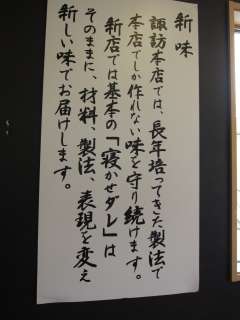 新味
諏訪本店では、長年培ってきた製法で
本店でしか作れない味を守り続けます。
新店では基本の「寝かせダレ」は
そのままに、材料、製法、表現を変え
新しい味でお届けします。